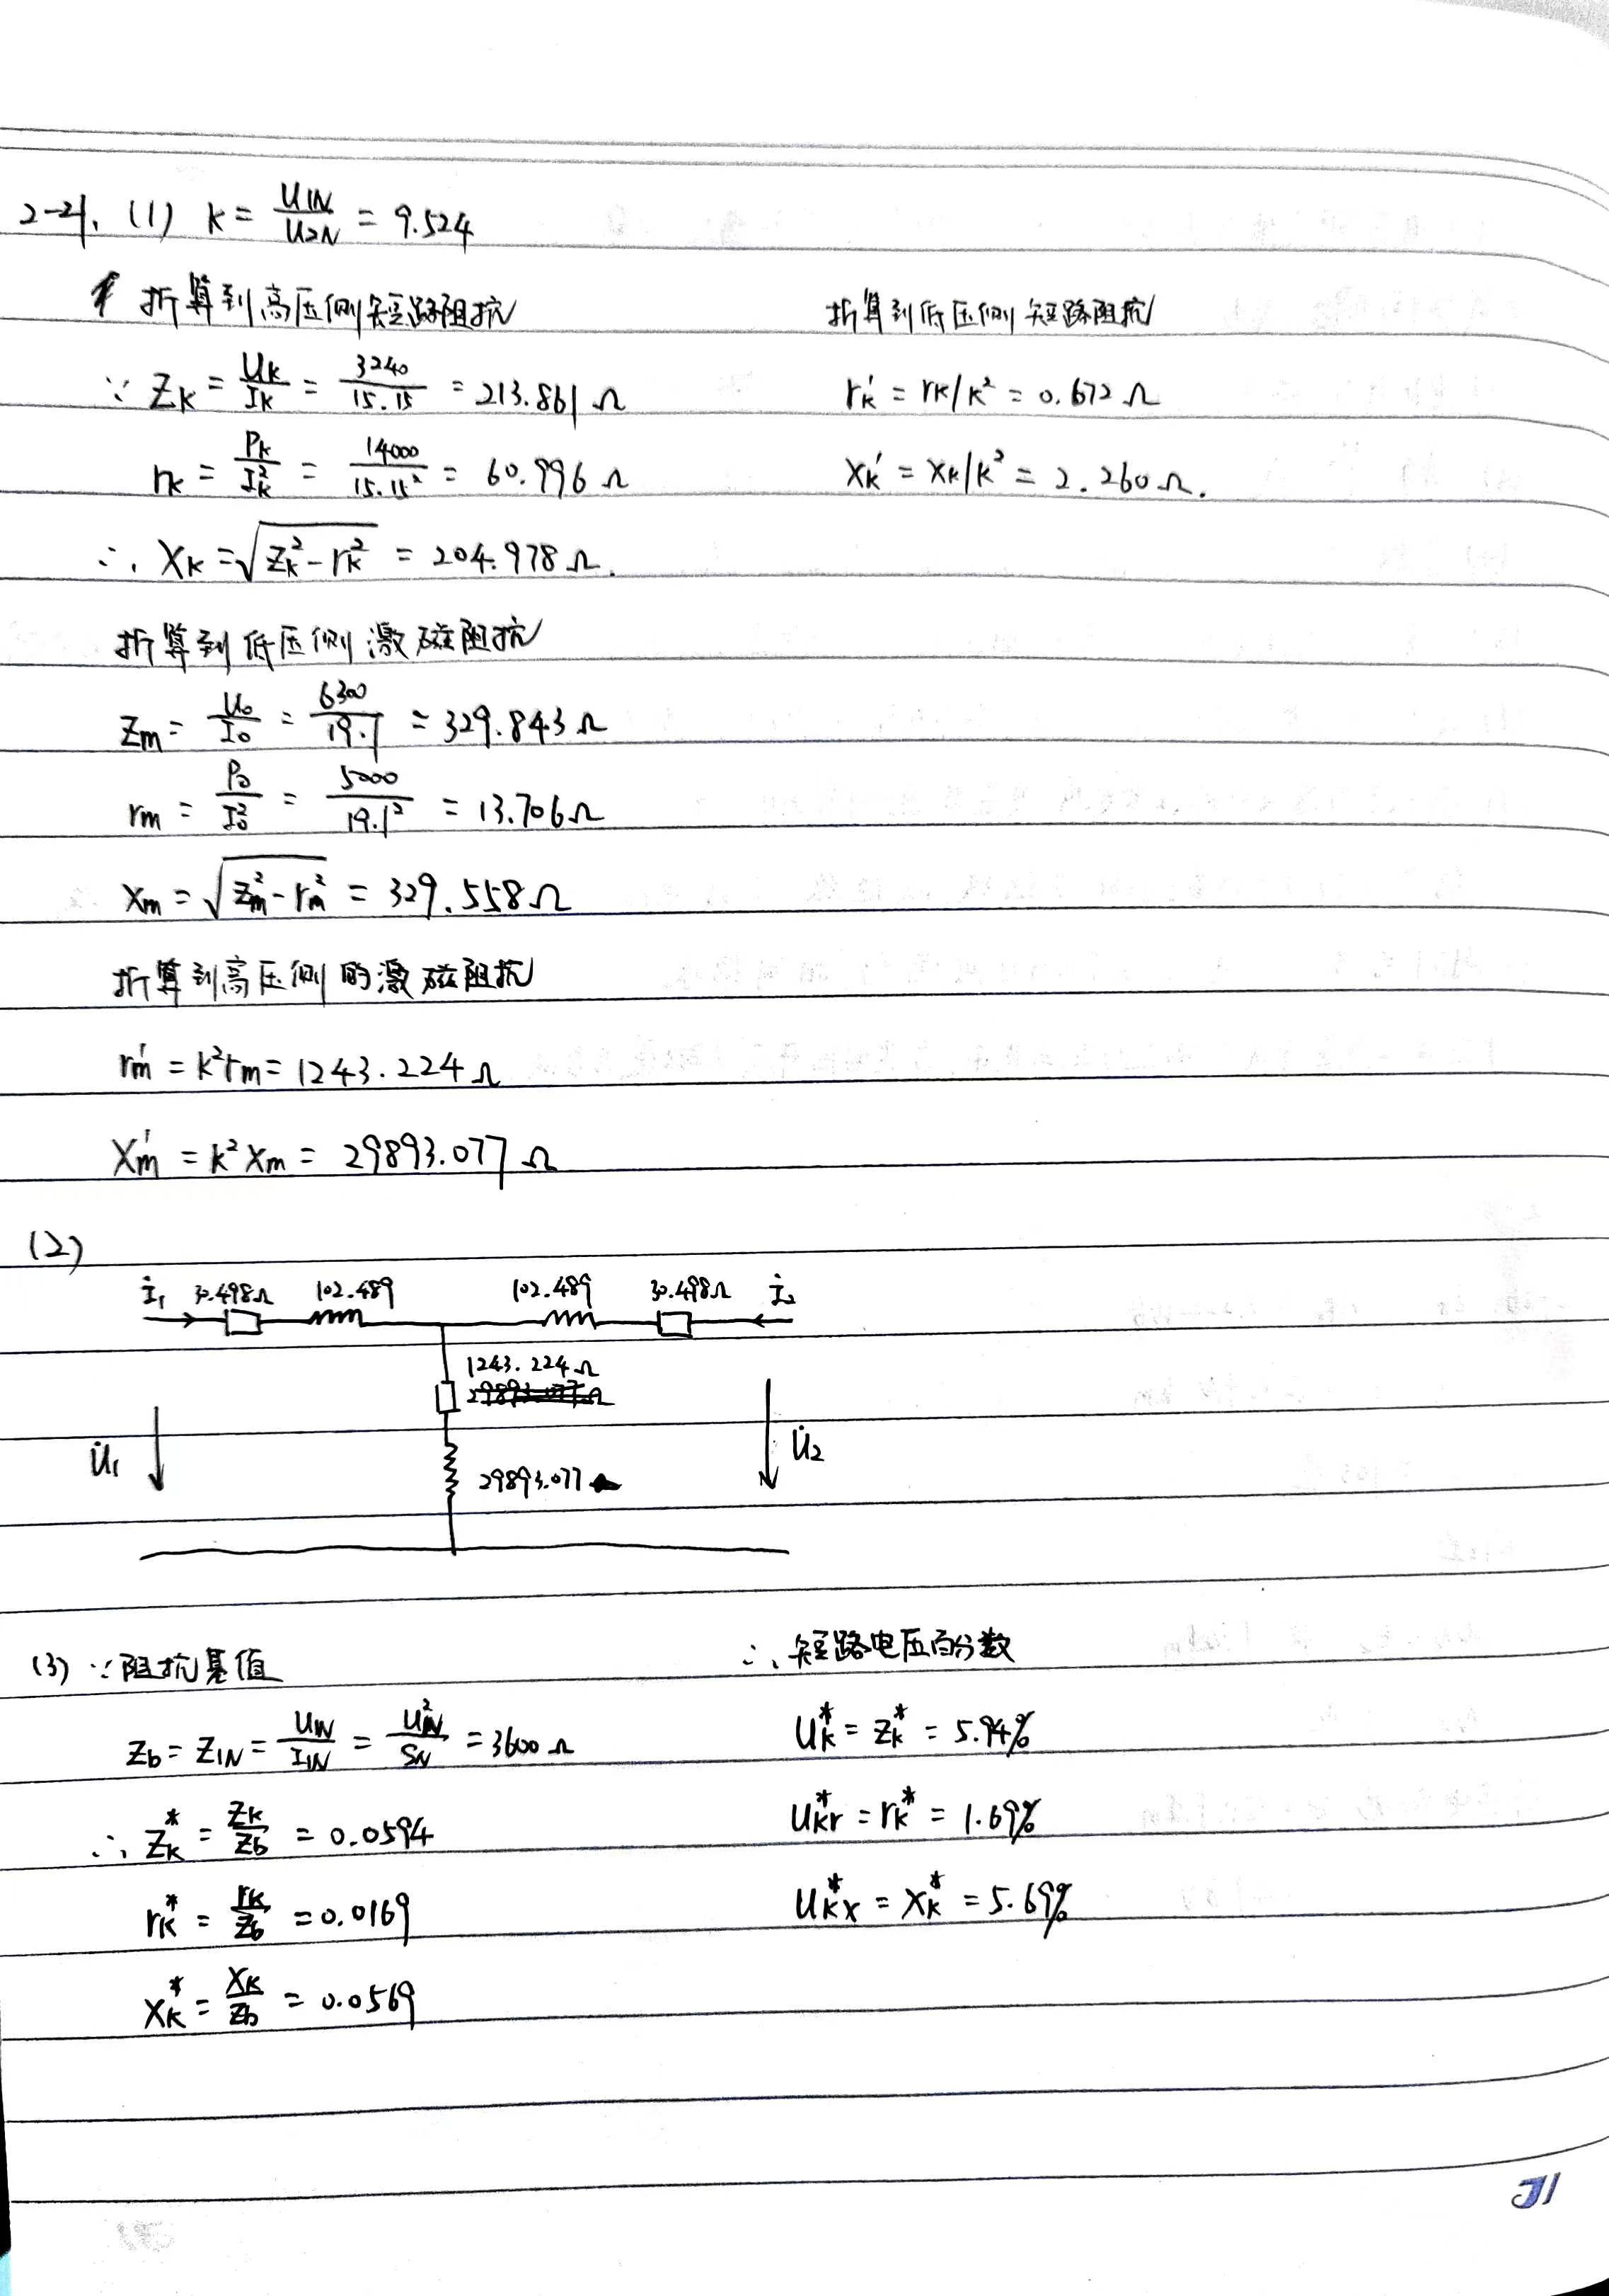 2-21. (1) k = U1N/U2N = 9.524
折算到高压侧短路阻抗
∵ Zk = Uk/Ik = 3240/15.15 = 213.861 Ω
rk = Pk/Ik² = 14000/15.15² = 60.996 Ω
∴ Xk = √(Zk² - rk²) = 204.978 Ω.
折算到低压侧短路阻抗
rk' = rk/k² = 0.672 Ω
Xk' = Xk/k² = 2.260 Ω.
折算到低压侧激磁阻抗
Zm = U0/I0 = 6300/19.1 = 329.843 Ω
rm = P0/I0² = 5000/19.1² = 13.706 Ω
Xm = √(Zm² - rm²) = 329.558 Ω
折算到高压侧的激磁阻抗
rm' = k²rm = 1243.224 Ω
Xm' = k²Xm = 29893.077 Ω
(2)
İ1 30.498Ω 102.489 102.489 30.498Ω İ2
1243.224Ω
U̇1 U̇2
29893.077
(3) ∵ 阻抗基值
Zb = Z1N = U1N/I1N = U1N²/SN = 3600 Ω
∴ Zk* = Zk/Zb = 0.0594
rk* = rk/Zb = 0.0169
Xk* = Xk/Zb = 0.0569
∴ 短路电压百分数
Uk* = Zk* = 5.94%
Ukr* = rk* = 1.69%
Ukx* = Xk* = 5.69%